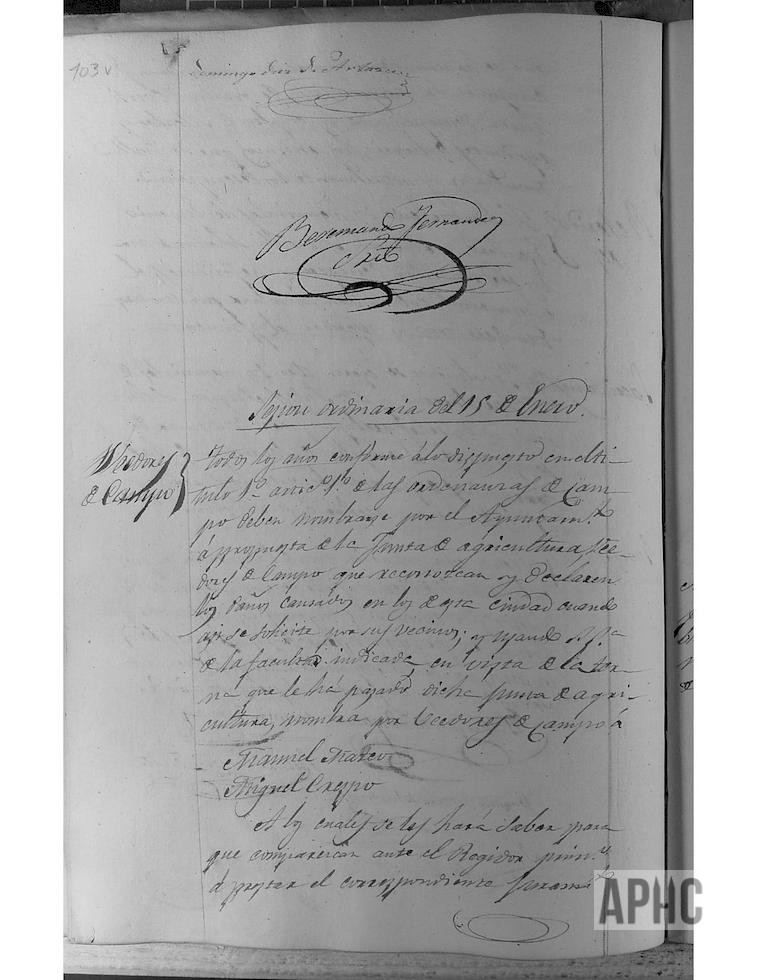 103 v
Domingo Diez de
Veremundo Fernandez
Srio
Sesion ordinaria del 15 de Enero.
Veedores
de Campo
Todos los años conforme á lo dispuesto en el ti-
tulo 1º artic.º 1.º de las ordenanzas de Cam-
po deben nombrarse por el Ayuntam.to
á propuesta de la Junta de agricultura, Vee-
dores de Campo que reconozcan y declaren
los daños causados en los de esta ciudad cuando
asi se solicite por sus vecinos; y usando
de la facultad indicada, en vista de la ter-
na que le há pasado dicha Junta de agri-
cultura, nombra por Veedores de Campo á
Manuel Marco
Miguel Crespo
A los cuales se les hará saber para
que comparezcan ante el Regidor prim.º
á prestar el correspondiente juram.to
APHC